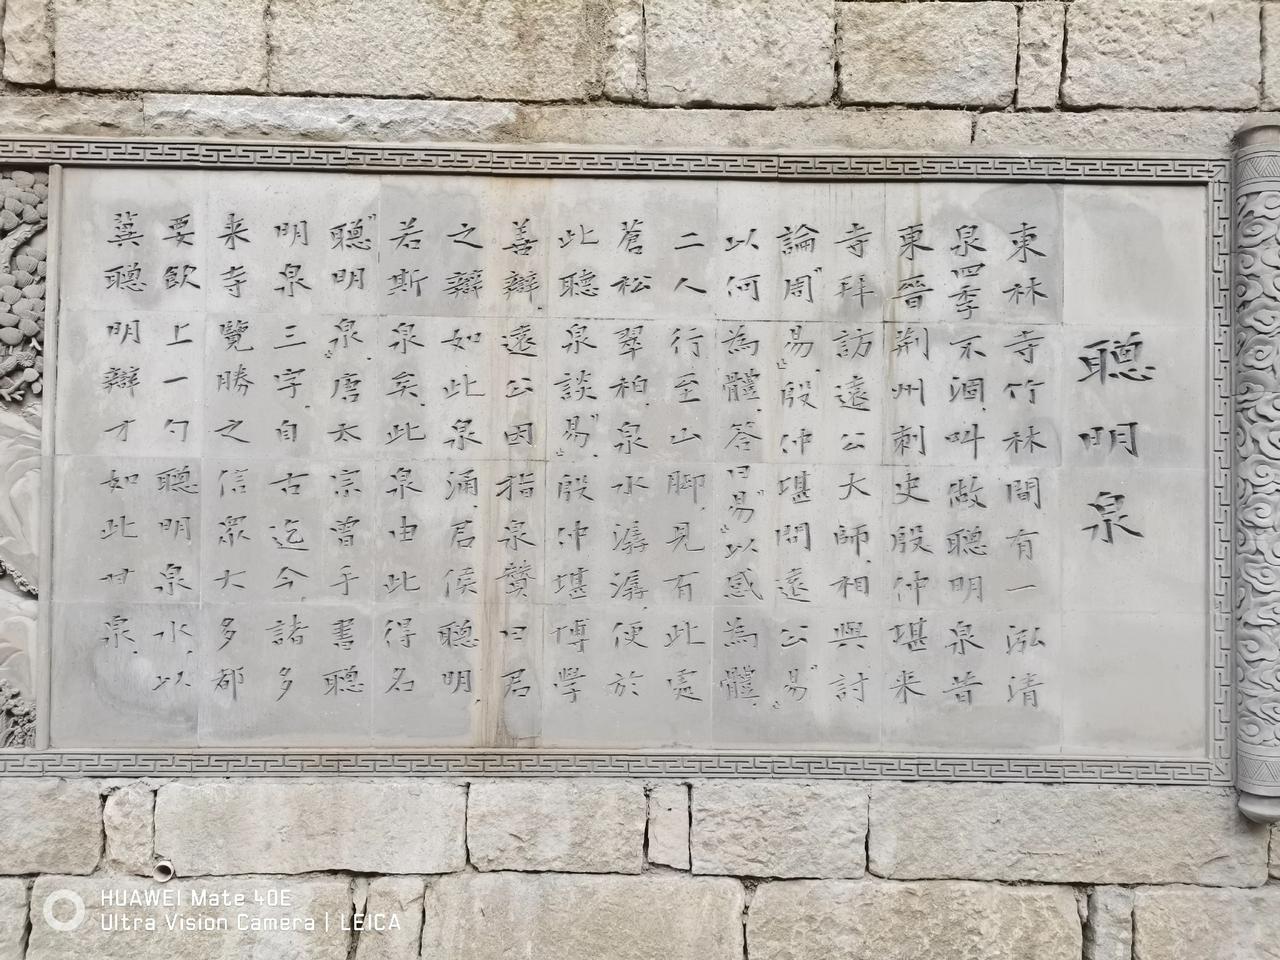 聰明泉
東林寺竹林間有一泓清
泉四季不涸,叫做聰明泉昔
東晉荆州刺史殷仲堪来
寺拜訪遠公大師相與討
論"周易"殷仲堪問遠公"易"
以何為體答曰"易"以感為體,
二人行至山脚見有此處
蒼松翠柏泉水潺潺,便於
此聰泉談"易"殷仲堪博學
善辯遠公因指泉贊曰君
之辯如此泉涌,君侯聰明,
若斯泉矣,此泉由此得名
"聰明泉"唐太宗曾手書聰
明泉三字,自古迄今,諸多
来寺覽勝之信眾大多都
要飲上一勺聰明泉水,以
冀聰明辯才如此甘泉,
HUAWEI Mate 40E
Ultra Vision Camera | LEICA